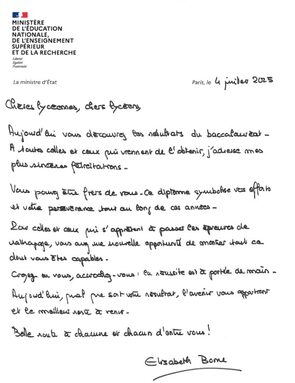 MINISTÈRE
DE L'ÉDUCATION
NATIONALE,
DE L'ENSEIGNEMENT
SUPÉRIEUR
ET DE LA RECHERCHE
Liberté
Égalité
Fraternité
La ministre d'État
Paris, le 4 juillet 2025
Chères lycéennes, chers lycéens,
Aujourd'hui vous découvrez les résultats du baccalauréat.
A toutes celles et ceux qui viennent de l'obtenir, j'adresse mes
plus sincères félicitations.
Vous pouvez être fiers de vous. Ce diplôme symbolise vos efforts
et votre persévérance tout au long de ces années.
Pour celles et ceux qui s'apprêtent à passer les épreuves de
rattrapage, vous avez une nouvelle opportunité de montrer tout ce
dont vous êtes capables.
Croyez en vous, accrochez-vous : la réussite est à portée de main.
Aujourd'hui, quel que soit votre résultat, l'avenir vous appartient
et le meilleur reste à venir.
Belle route à chacune et chacun d'entre vous !
Elisabeth Borne